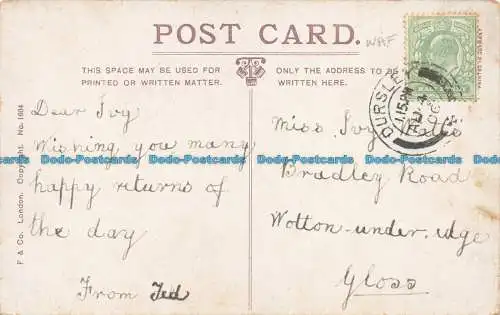 POST CARD.
W&F
THIS SPACE MAY BE USED FOR
PRINTED OR WRITTEN MATTER.
ONLY THE ADDRESS TO BE
WRITTEN HERE.
Dear Ivy
Wishing you many
happy returns of
the day
From Ted
Miss Ivy
Bradley Road
Wotton-under-edge
Gloss
DURSLEY
1.15PM
F & Co. London, Copyright. No. 1604
Dodo-Postcards Dodo-Postcards Dodo-Postcards Dodo-Postcards Dodo-Postcards